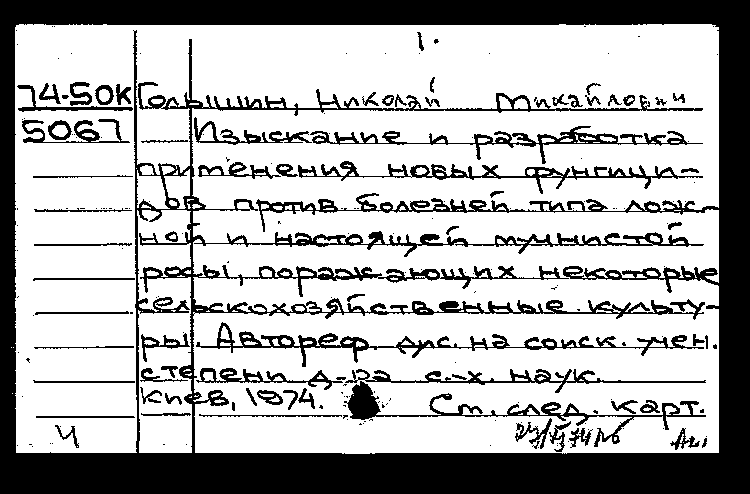 1.
74-50К Голышин, Николай Михайлович
5067 Изыскание и разработка
применения новых фунгици-
дов против болезней типа лож-
ной и настоящей мучнистой
росы, поражающих некоторые
сельскохозяйственные культу-
ры. Автореф. дис. на соиск. учен.
степени д-ра с.-х. наук.
Киев, 1974. См. след. карт.
Ч